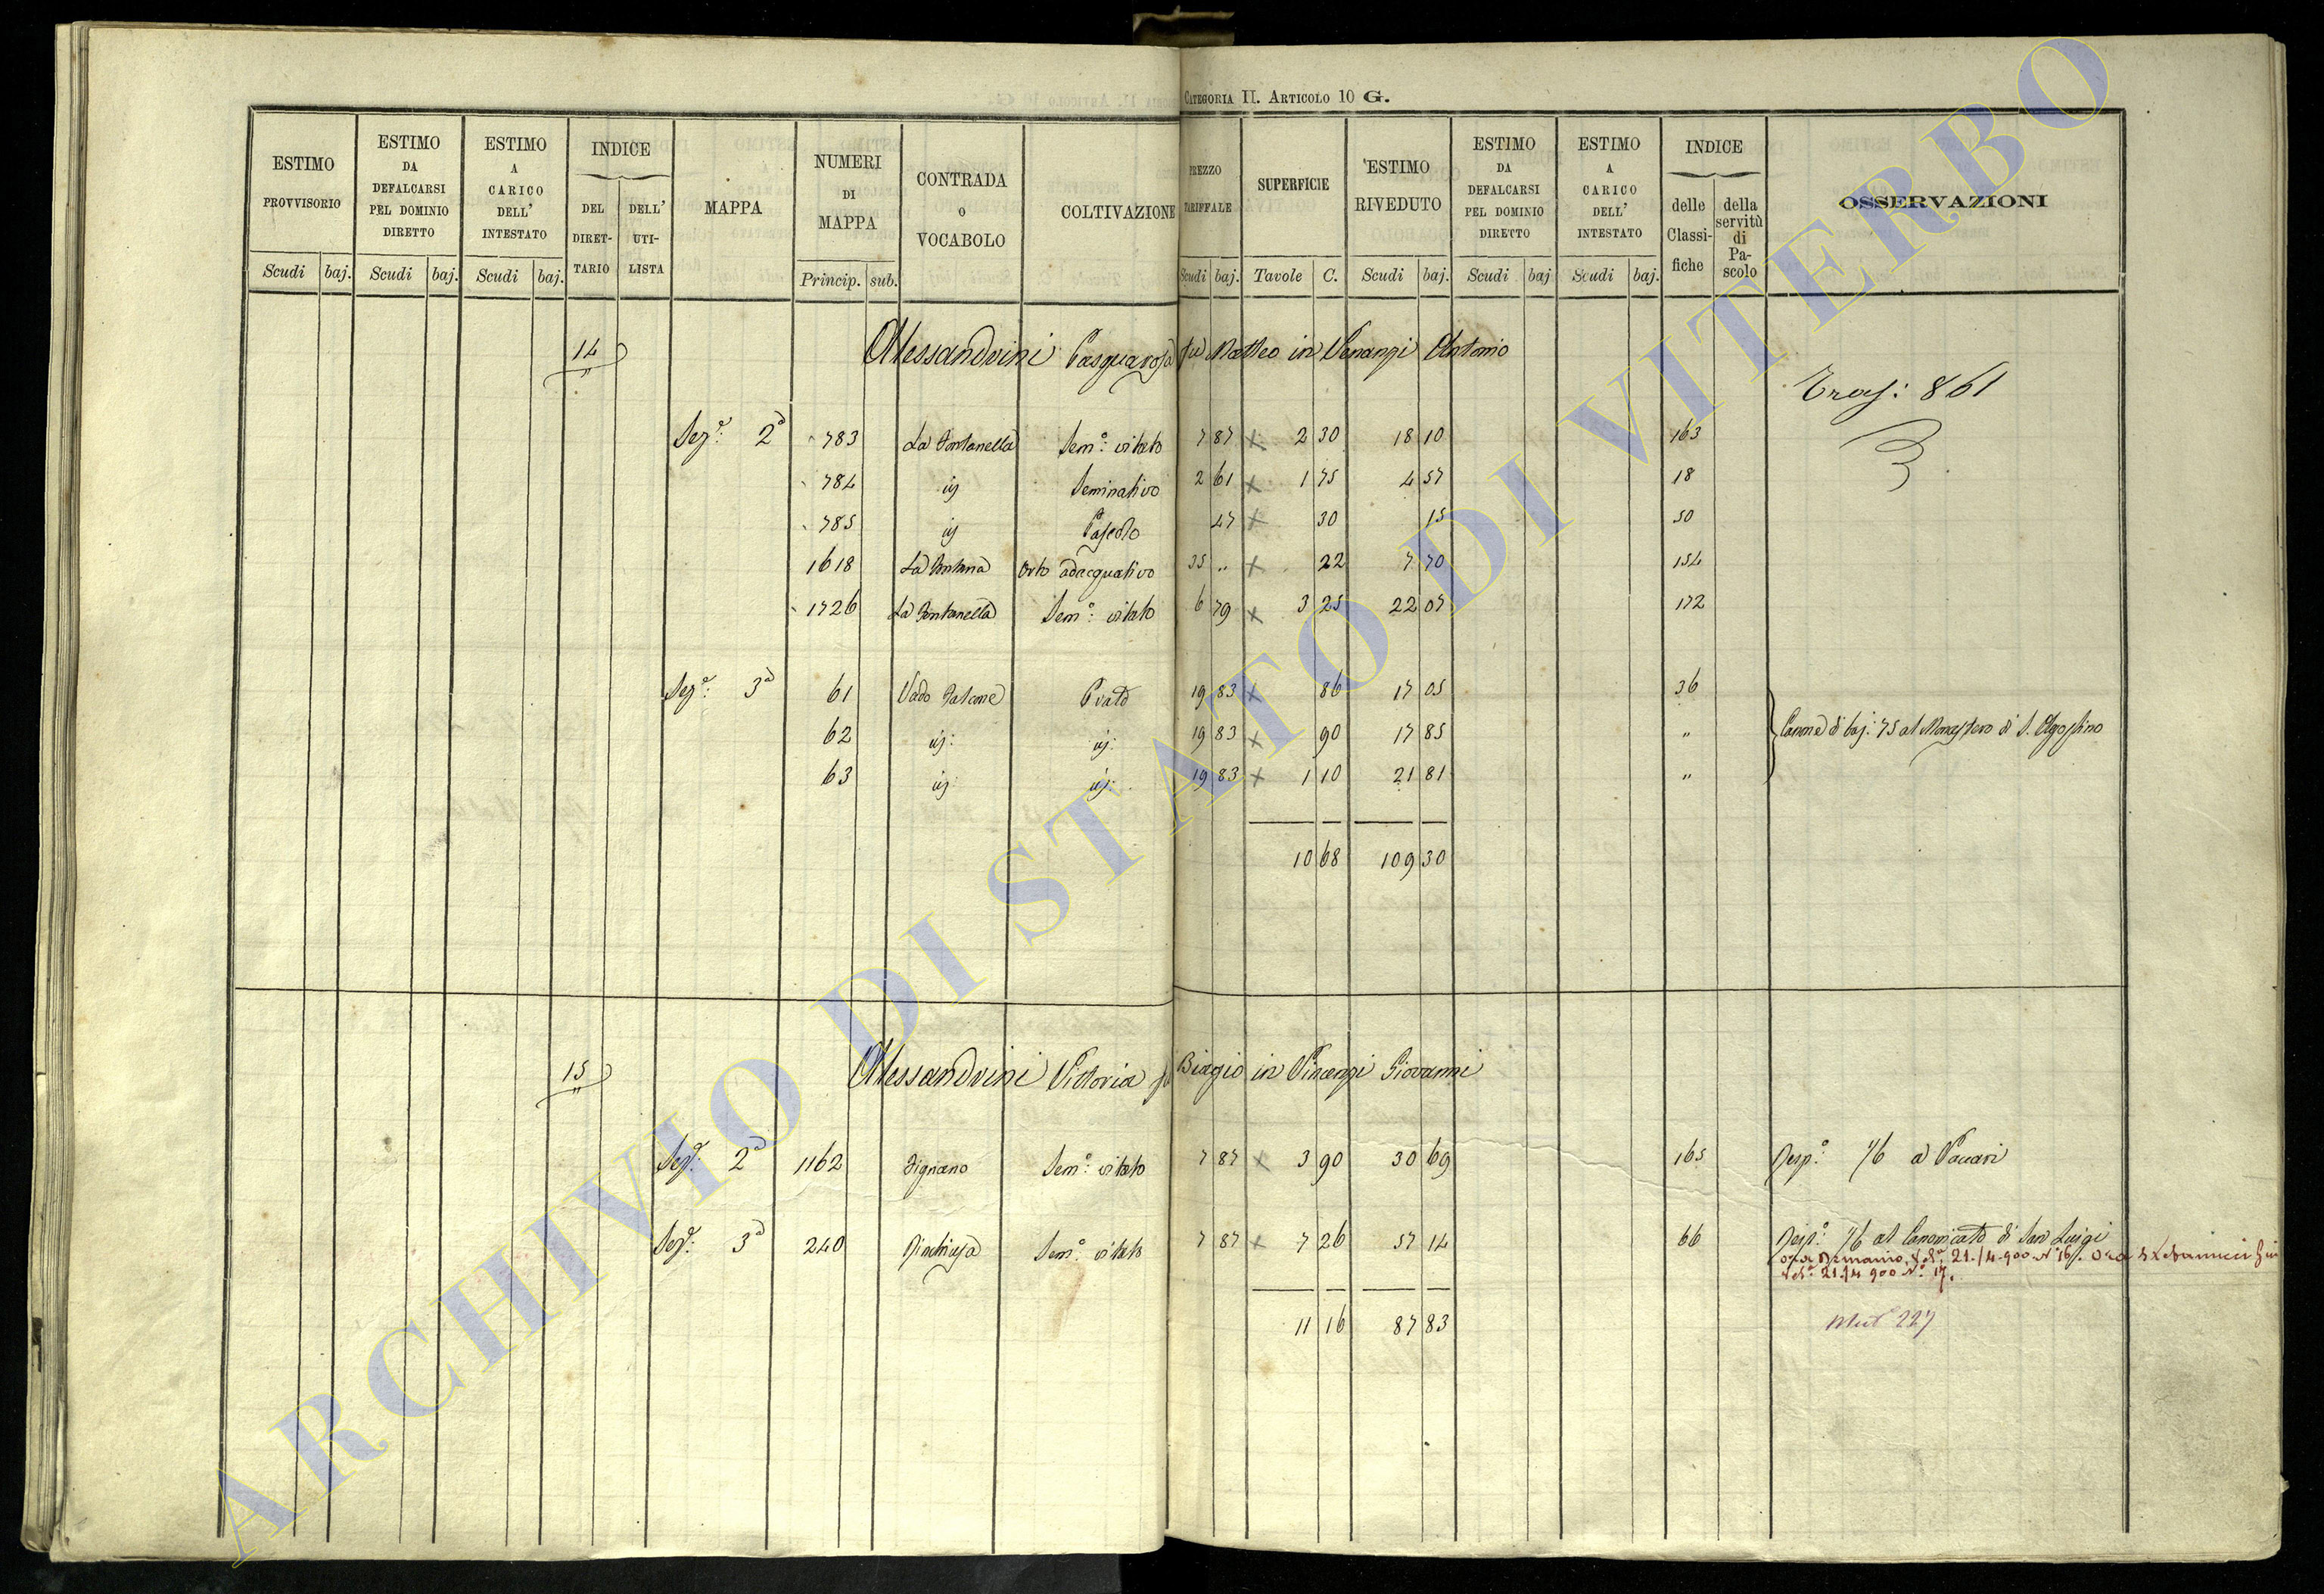 CATEGORIA II. ARTICOLO 10 G.
ESTIMO PROVVISORIO Scudi baj.
ESTIMO DA DEFALCARSI PEL DOMINIO DIRETTO Scudi baj.
ESTIMO A CARICO DELL' INTESTATO Scudi baj.
INDICE DEL DIRET-TARIO DELL' UTI-LISTA
MAPPA
NUMERI DI MAPPA Princip. sub.
CONTRADA O VOCABOLO
COLTIVAZIONE
PREZZO TARIFFALE Scudi baj.
SUPERFICIE Tavole C.
ESTIMO RIVEDUTO Scudi baj.
ESTIMO DA DEFALCARSI PEL DOMINIO DIRETTO Scudi baj
ESTIMO A CARICO DELL' INTESTATO Scudi baj.
INDICE delle Classi-fiche della servitù di Pa-scolo
OSSERVAZIONI
14 Alessandrini Pasquarosa fu Matteo in Venanzi Antonio
Tras: 861
Sez.e: 2a 783 La Fontanella Sem.o: vitato 7 87 x 2 30 18 10 163
784 id Seminativo 2 61 x 1 75 4 57 18
785 id Pascolo 47 x 30 15 50
1618 La Fontana Orto adacquativo 35 .. x 22 7 70 154
1726 La Fontanella Sem.o: vitato 6 79 x 3 25 22 07 172
Sez.e: 3a 61 Vado Falcone Prato 19 83 x 86 17 05 36
62 id: id: 19 83 x 90 17 85 "
Canone di baj: 75 al Monastero di S. Agostino
63 id: id: 19 83 x 1 10 21 81 "
10 68 109 30
15 Alessandrini Vittoria fu Biagio in Vincenzi Giovanni
Sez.e: 2a 1162 Signano Sem.o: vitato 7 87 x 3 90 30 69 165 Resp.o: 1/6 a
Sez.e: 3a 240 Sem.o: vitato 7 87 x 7 26 57 14 66 Resp.o: 1/6 al Canonicato di San Luigi
ora Demanio 21/4 900 N 16. ora
21/4 900 N.o 17.
11 16 87 83
Mut 227
ARCHIVIO DI STATO DI VITERBO